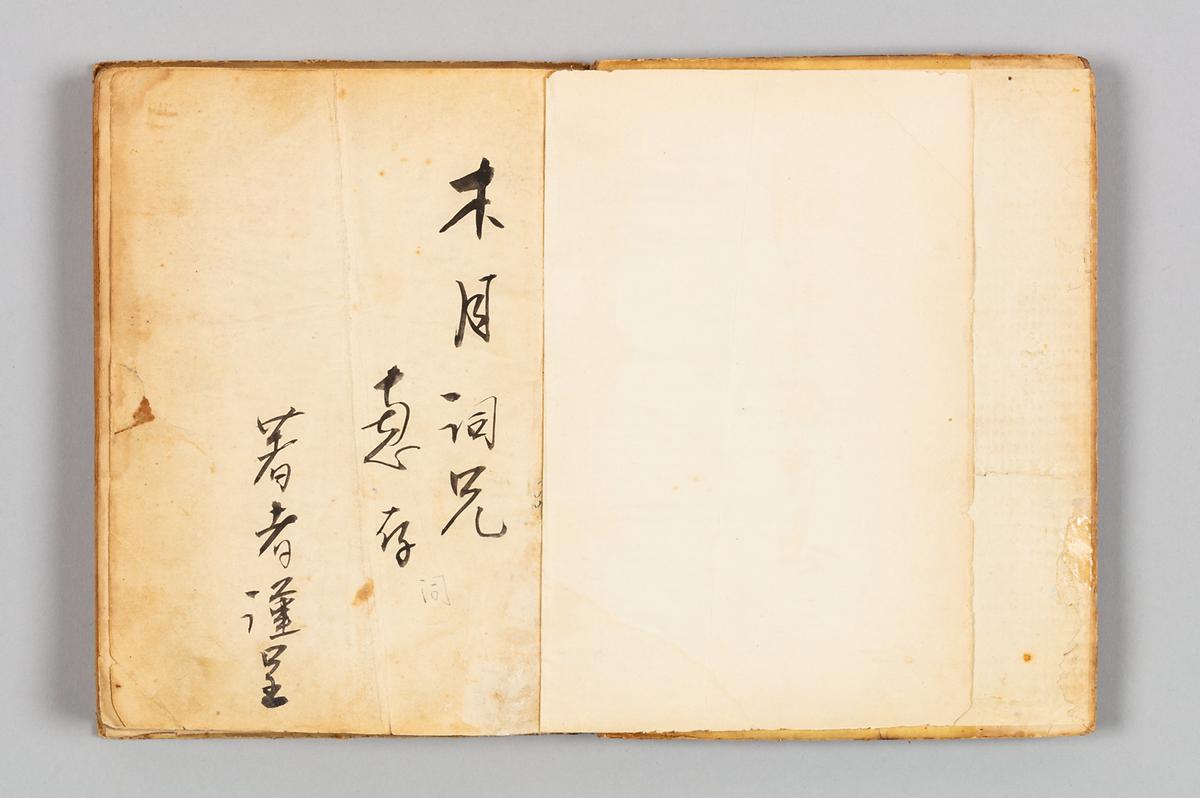 木月詞兄
惠存
著者謹呈
詞